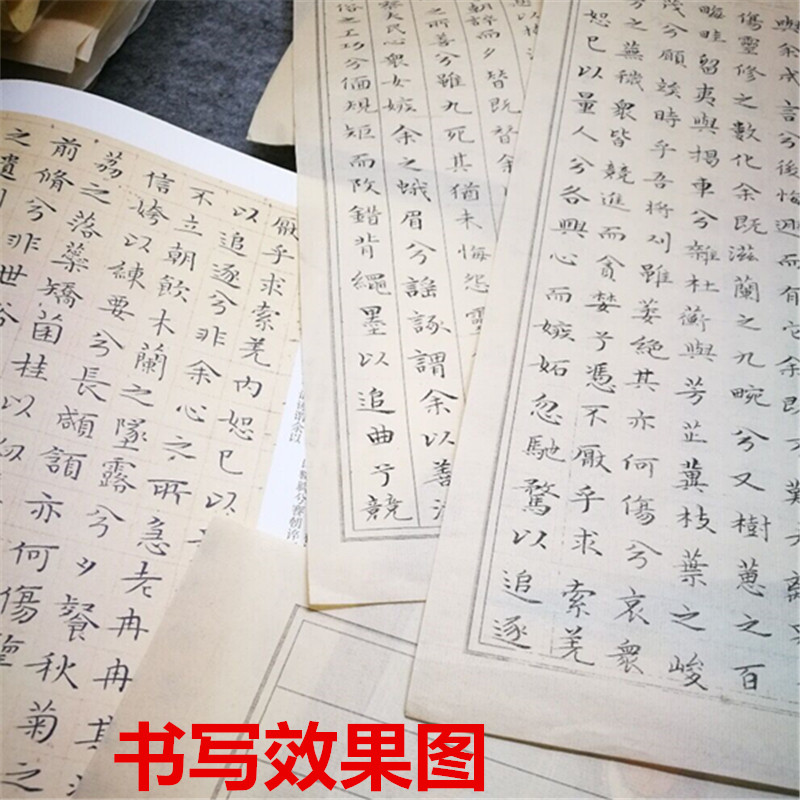 與余成言兮後悔遁而有它余既不
傷靈修之數化余既滋蘭之九畹兮又樹蕙之百
畮畦留夷與揭車兮雜杜蘅與芳芷冀枝葉之峻
茂兮願竢時乎吾將刈雖萎絕其亦何傷兮哀衆
之蕪穢衆皆競進而貪婪兮憑不厭乎求索羌
恕己以量人兮各興心而嫉妬忽馳騖以追逐
朝誶而夕替既替余
之所善兮雖九死其猶未悔怨靈
察夫民心衆女嫉余之蛾眉兮謠諑謂余以善淫
俗之工巧兮偭規矩而改錯背繩墨以追曲兮競
厭乎求索羌内恕己以
以追逐兮非余心之所急老冉冉其
不立朝飲木蘭之墜露兮夕餐秋菊之
信姱以練要兮長顑頷亦何傷
荔之落蘂矯菌桂以紉
前脩兮非世俗
之遺則
书写效果图